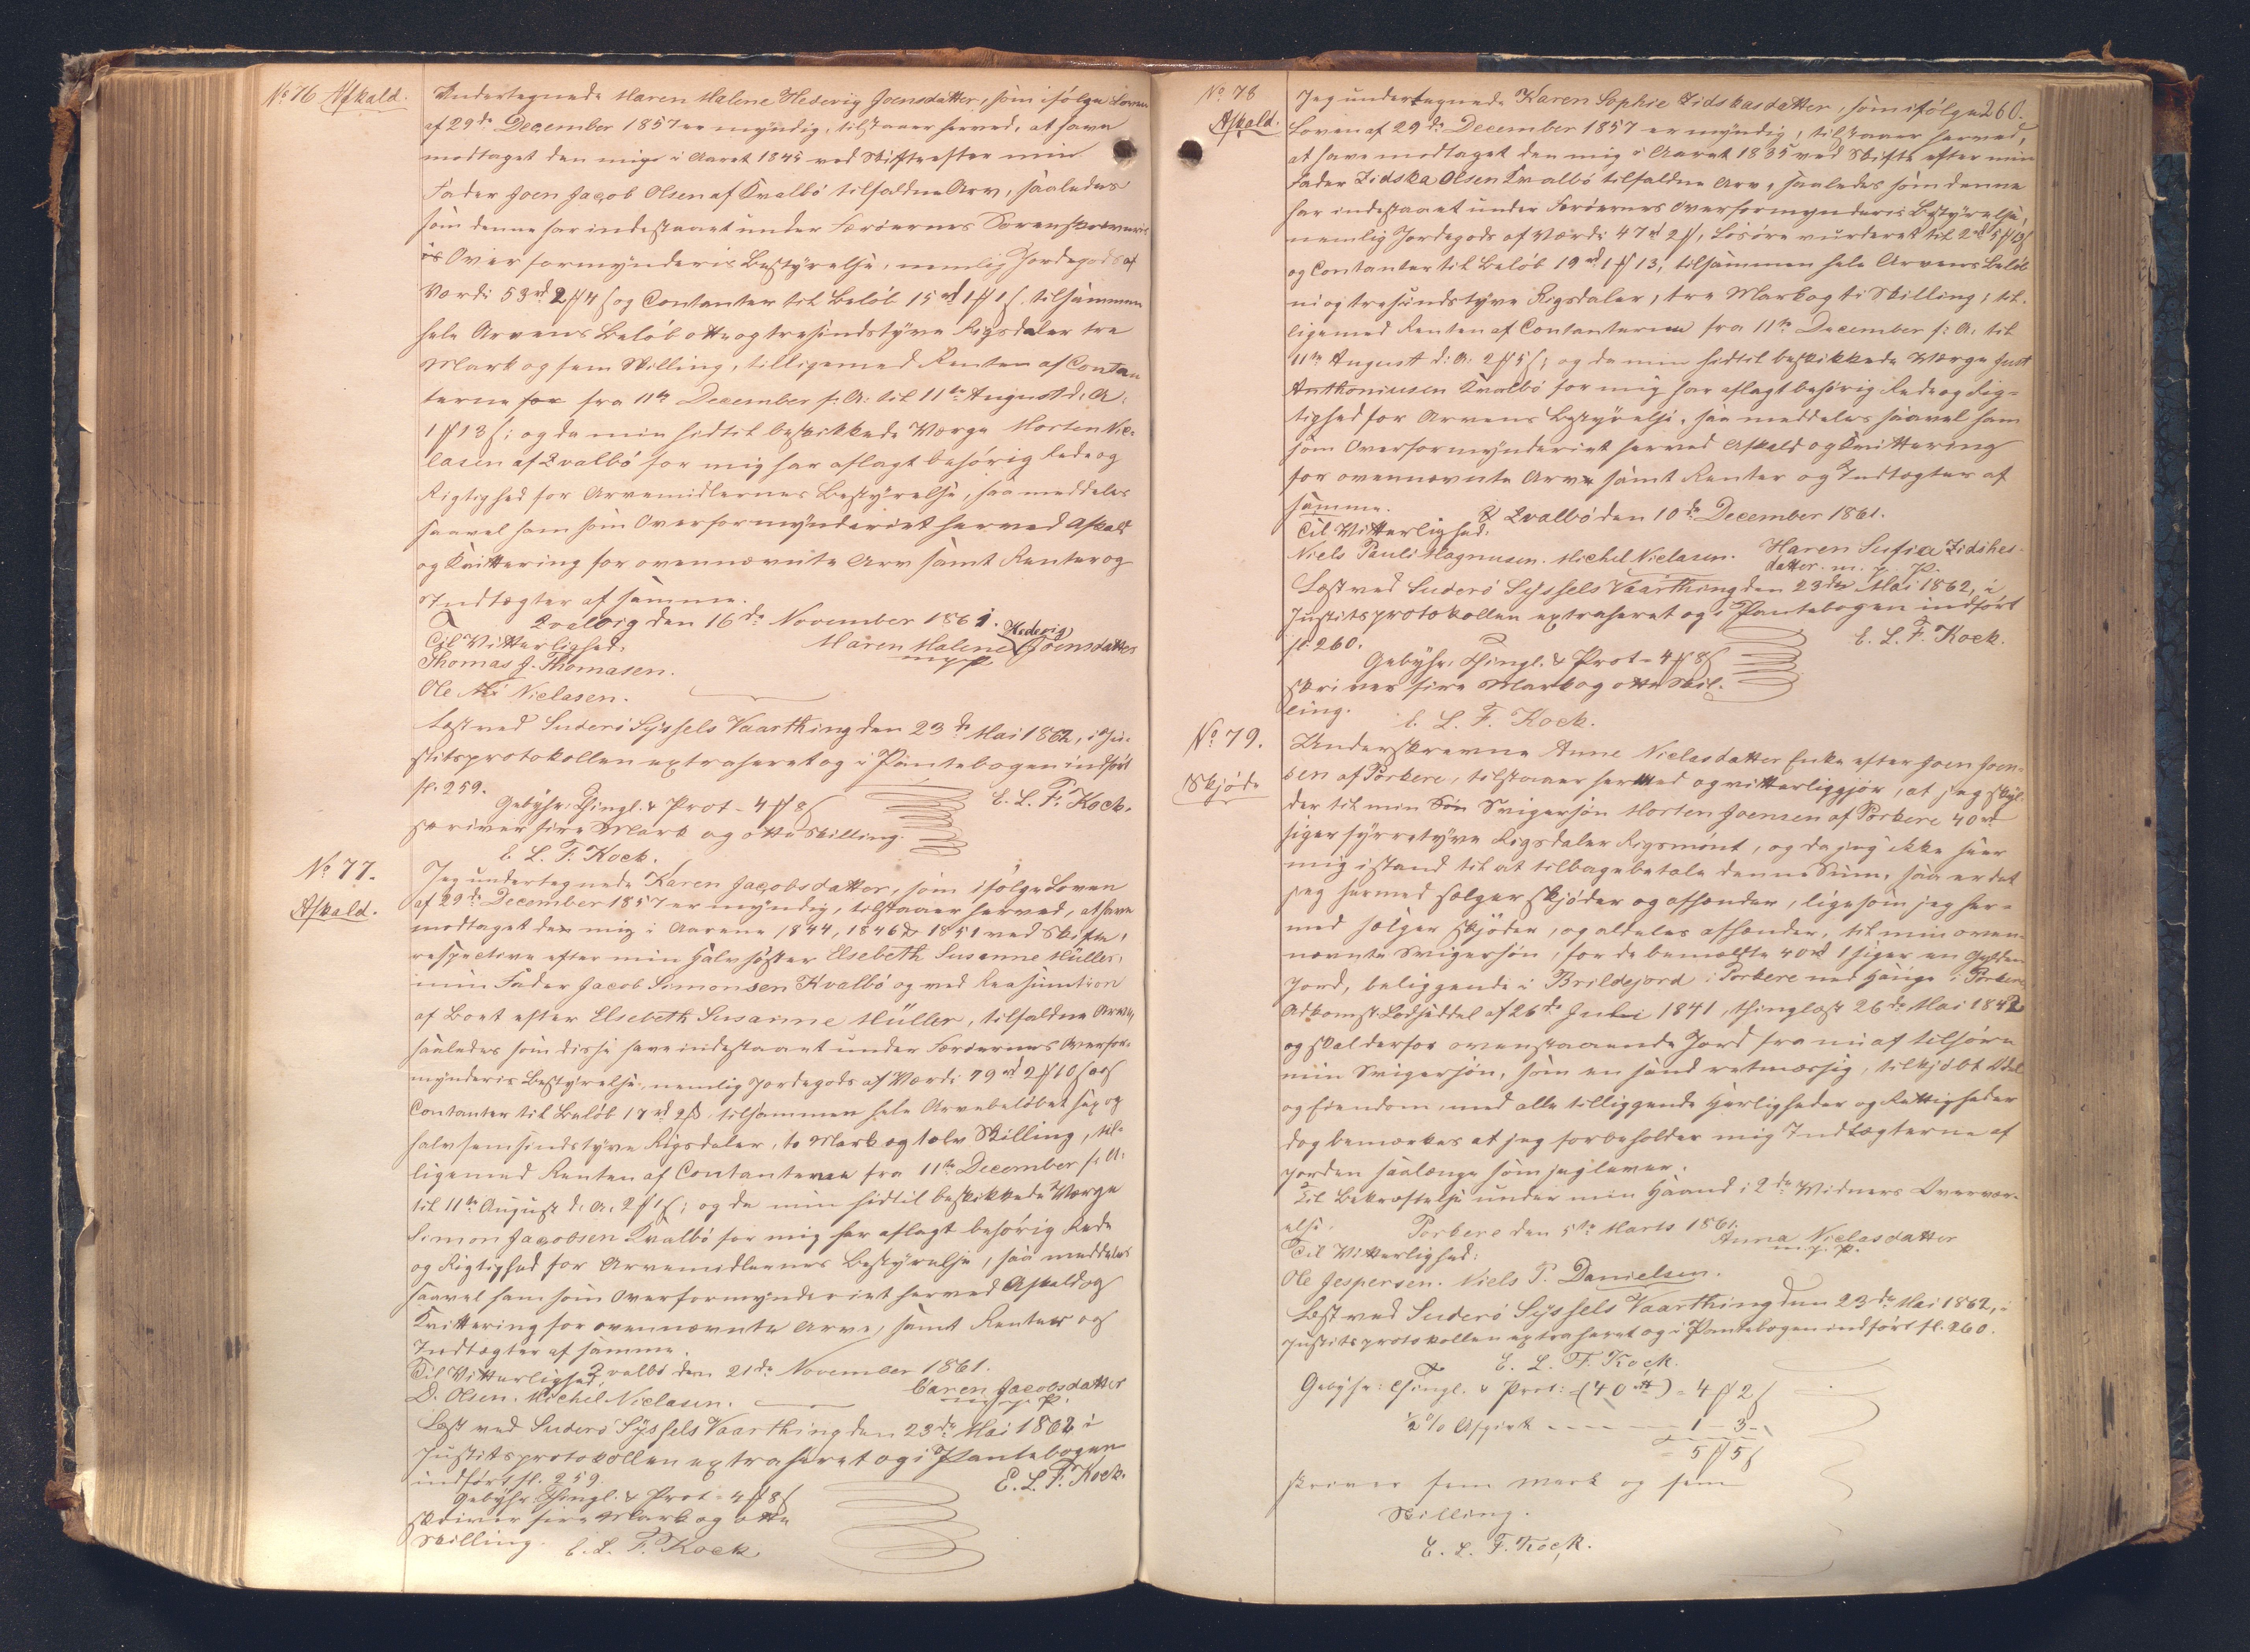 No 76 Afkald.
Undertegnede Maren Malene Hedevig Joensdatter, som ifølge Loven
af 29de December 1857 er myndig, tilstaaer herved, at have
modtaget den mig i Aaret 1845 ved Skiftet efter min
Fader Joen Jacob Olsen af Kvalbö tilfaldne Arv, saaledes
som denne har indestaaet under Færøernes Sorenskriveries
Overformynderis Bestyrelse, nemlig Jordegods af
Værdi 53rd 2 # 4 ß og Contanter til Beløb 15rd 1 # 1 ß tilsammen
hele Arvens Beløb otte og tresindstyve Rigsdaler tre
Mark og fem Skilling, tilligemed Renten af Contan
terne for fra 11te December f: A: til 11te August d: A:
1 # 13 ß; og da min hidtil beskikkede Værge Morten Nic-
lasen af Qvalbö for mig har aflagt behørig Rede og
Rigtighed for Arvemidlernes Bestyrelse, saa meddeles
saavel ham som Overformynderiet herved Afkald
og Kvittering for ovennævnte Arv samt Renter og
Indtægter af samme.
Qvalvig den 16de November 1861.
Til Vitterlighed: Maren Malene Hedevig Joensdatter
Thomas J. Thomasen. m. p. p.
Ole Niclasen.
Læst ved Suderö Syssels Vaarthing den 23de Mai 1862, i Ju-
stitsprotokollen extraheret og i Pantebogen indført
fl. 259. E. L. F. Kock.
Gebyhr: Thingl. & Prot = 4 # 8 ß
skriver fire Mark og otte Skilling.
E. L. F. Kock.
No 77.
Afkald.
Jeg undertegnede Karen Jacobsdatter, som ifølge Loven
af 29de December 1857 er myndig, tilstaaer herved, at have
modtaget den mig i Aarene 1844, 1846 & 1851 ved Skifte,
respective efter min Halvsöster Elsebeth Susanne Müller,
min Fader Jacob Simonsen Kvalbö og ved Reasumtion
af Boet efter Elsebeth Susanne Müller, tilfaldne Arve,
saaledes som disse have indestaaet under Færøernes Overfor-
mynderis Bestyrelse, nemlig Jordegods af Værdi 79rd 2 # 10 ß og
Contanter til Beløb 17rd 2 ß, tilsammen hele Arvebeløbet sex og
halvfemsindstyve Rigsdaler, to Mark og tolv Skilling, til-
ligemed Renten af Contanterne fra 11te December f: A:
til 11te August d. A. 2 # 1 ß; og da min hidtil beskikkede Værge
Simon Jacobsen Kvalbö for mig har aflagt behørig Rede
og Rigtighed for Arvemidlernes Bestyrelse, saa meddeles
saavel ham som Overformynderiet herved Afkald og
Kvittering for ovennævnte Arve, samt Renter og
Indtægter af samme.
Qvalbö den 21de November 1861.
Til Vitterlighed: Caren Jacobsdatter
D. Olsen. Michel Niclasen. m. p. p.
Læst ved Suderö Syssels Vaarthing den 23de Mai 1862 i
Justitsprotokollen extraheret og i Pantebogen
indført fl. 259. E. L. F. Kock.
Gebyhr: Thingl. & Prot = 4 # 8 ß
skriver fire Mark og otte
Skilling. E. L. F. Kock
No 78
Afkald.
260.
Jeg undertegnede Karen Sophie Zidskasdatter, som ifølge
Loven af 29de December 1857 er myndig, tilstaaer herved,
at have modtaget den mig i Aaret 1835 ved Skifte efter min
Fader Zidska Olsen Kvalbö tilfaldne Arv, saaledes som denne
har indestaaet under Færøernes Overformynderis Bestyrelse,
nemlig Jordegods af Værdi 47rd 2 #, Lösöre vurderet til 2rd 5 # 13 ß
og Contanter til Beløb 19rd 1 # 13, tilsammen hele Arvens Beløb
ni og tresindstyve Rigsdaler, tre Mark og ti Skilling, til-
ligemed Renten af Contanterne fra 11te December f: A: til
11te August d: A: 2 # 5 ß; og da min hidtil beskikkede Værge Just
Anthoniusen Kvalbö for mig har aflagt behørig Rede og Rig-
tighed for Arvens Bestyrelse, saa meddeles saavel ham
som Overformynderiet herved Afkald og Kvittering
for ovennævnte Arv samt Renter og Indtægter af
samme. Qvalbö den 10de December 1861.
Til Vitterlighed:
Niels Pauli Magnusen. Michel Niclasen. Haren Sufia Zidskes-
datter. m. p. p.
Læst ved Suderö Syssels Vaarthing den 23de Mai 1862, i
Justitsprotokollen extraheret og i Pantebogen indført
fl. 260. E. L. F. Kock.
Gebyhr: Thingl. & Prot = 4 # 8 ß
skriver fire Mark og otte Skil-
ling. E. L. F. Kock.
No 79.
Skjøde
Underskrevne Anne Niclasdatter Enke efter Joen Joen-
sen af Porkere, tilstaaer herved og vitterliggjør, at jeg skyl-
der til min Søn Svigersøn Morten Joensen af Porkere 40rd
siger fyrretyve Rigsdaler Rigsmønt, og da jeg ikke seer
mig istand til at tilbagebetale denne Sum, saa er det
jeg hermed sælger skjøder og afhænder, ligesom jeg her-
med sælger skjøder, og aldeles afhænder, til min oven-
nævnte Svigersøn, for de bemældte 40rd 1 siger en Gylden
Jord, beliggende i Brildejord i Porkere med Hauge i Porkere
Adkomst Lodseddel af 26de Juli 1841, thinglæst 26de Mai 1842
og skal derfor ovenstaaende Jord fra nu af tilhøre
min Svigersøn, som en sand retmæssig, tilkjøbt Odel
og Eiendom, med alle tilliggende Herligheder og Rettigheder
dog bemærkes at jeg forbeholder mig Indtægterne af
Jorden saalænge som jeg lever.
Til Bekræftelse under min Haand i 2de Widners Overvær-
else. Porkere den 5te Marts 1861.
Til Vitterlighed: Anna Niclasdatter
m. p. p.
Ole Jespersen. Niels P. Danielsen.
Læst ved Suderö Syssels Vaarthing den 23de Mai 1862, i
Justitsprotokollen extraheret og i Pantebogen indført fl. 260.
E. L. F. Kock.
Gebyhr: Thingl. & Prot: (40rd) = 4 # 2 ß
½ % Afgivt - - - - 1 - 3 -
5 # 5 ß
skriver fem Mark og fem
Skilling.
E. L. F. Kock.